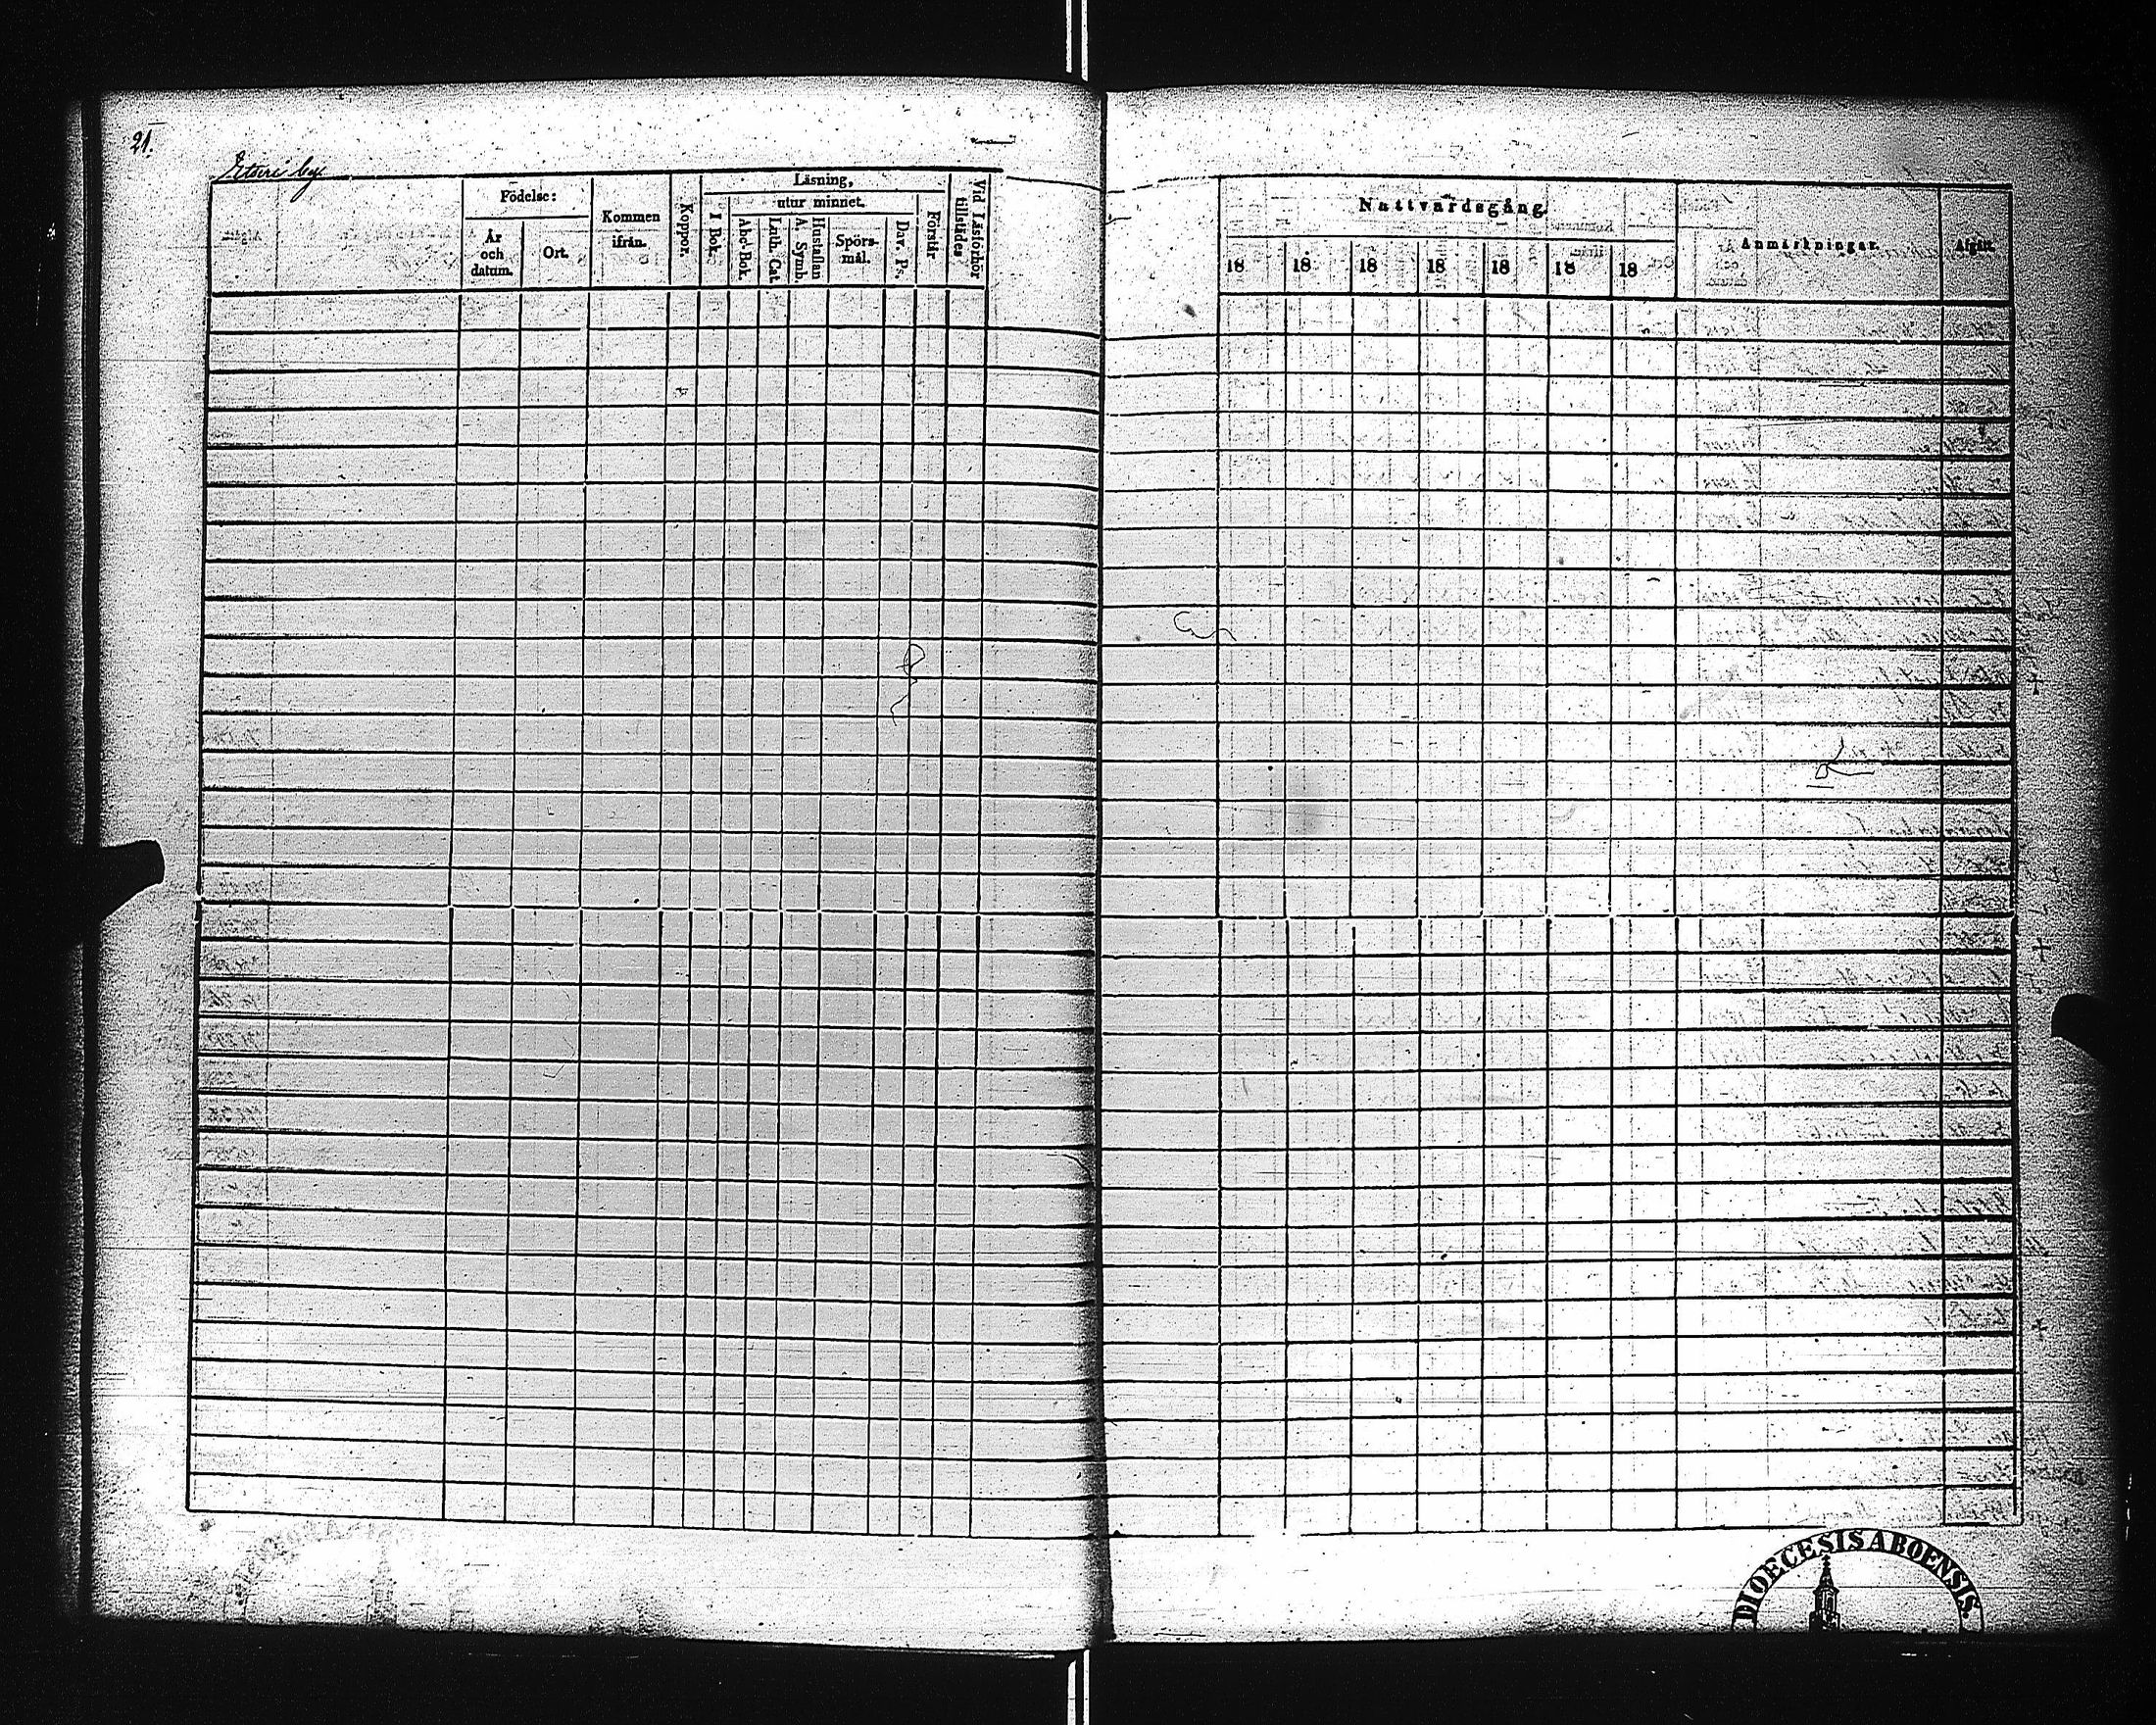 21.
by.
Födelse:
År och datum.
Ort.
Kommen ifrån.
Koppor.
Läsning,
I Bok.
utur minnet.
Abc-Bok.
Luth. Cat.
A. Symb. Hustaflan
Spörsmål.
Dav. Ps.
Förstår
Vid Läsförhör tillstädes
Nattvardsgång.
18 18 18 18 18 18 18
Anmärkningar.
Afgått.
DIOECESIS ABOENSIS.